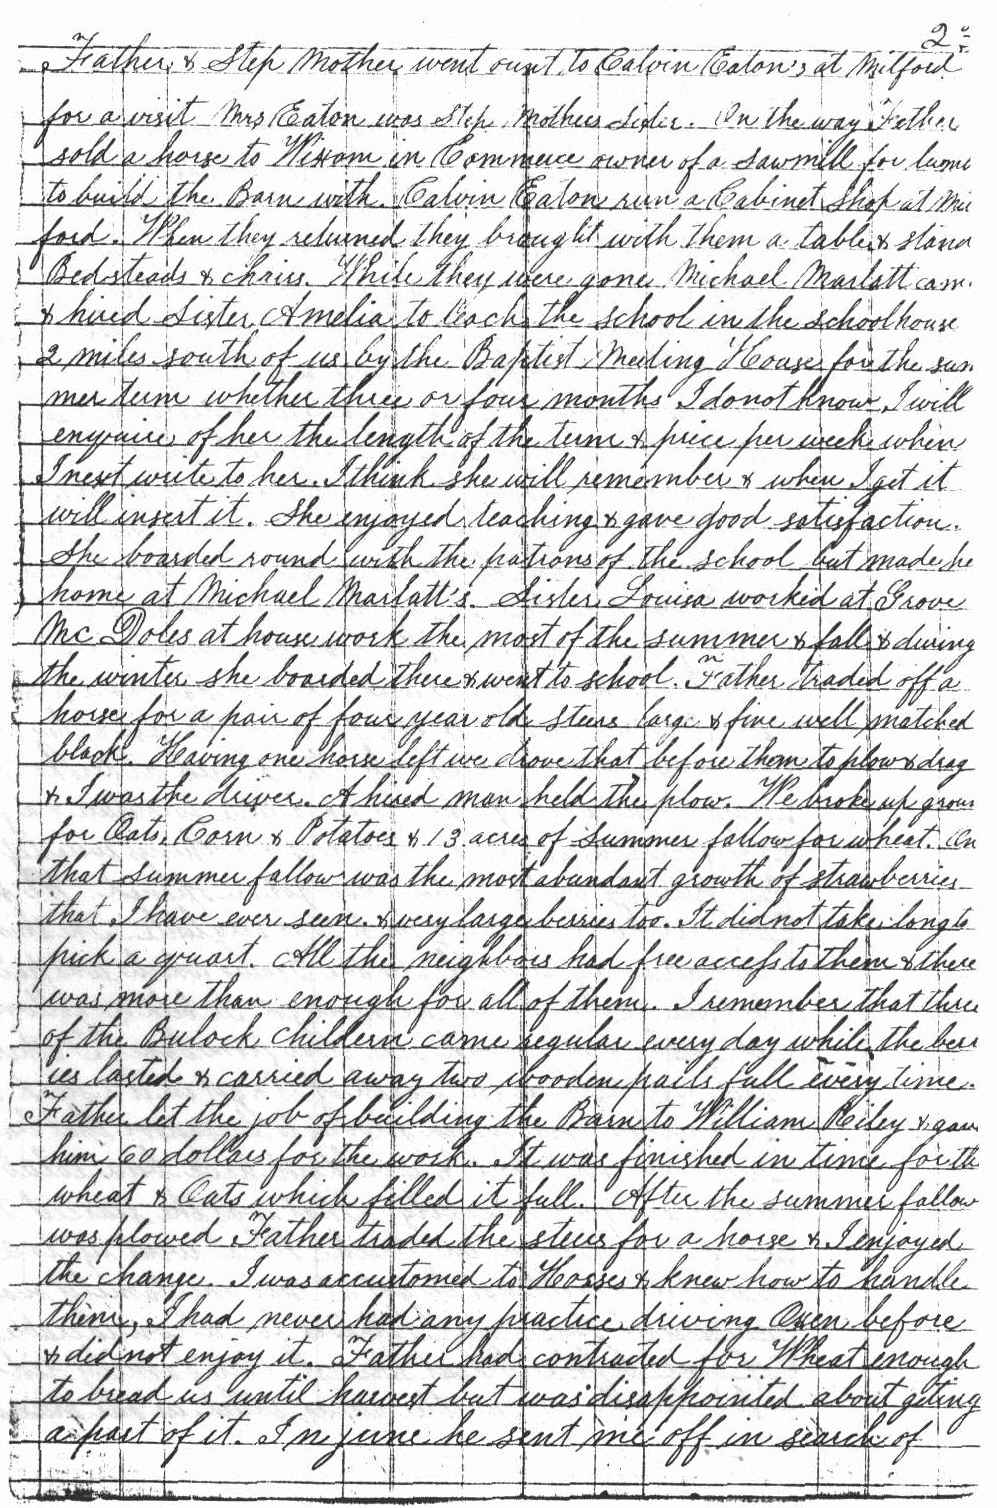 2
Father & Step Mother went ount to Calvin Eaton's at Milford
for a visit Mrs Eaton was Step Mothers Sister. On the way Father
sold a horse to Wixom in Commerce owner of a Sawmill for lum
to build the Barn with. Calvin Eaton run a Cabinet Shop at Mil
ford. When they returned they brought with them a table & stand
Bedsteads & chairs. While they were gone Michael Marlatt cam
& hired Sister Amelia to teach the school in the schoolhouse
2 miles south of us by the Baptist Meeting House for the sum
mer term whether three or four months I do not know I will
enquire of her the length of the term & price per week when
I next write to her. I think she will remember & when I get it
will insert it. She enjoyed teaching & gave good satisfaction.
She boarded round with the patrons of the school but made he
home at Michael Marlatt's. Sister Louisa worked at Grove
Mc Doles at house work the most of the summer & fall & during
the winter she boarded there & went to school. Father traded off a
horse for a pair of four year old steers large & fine well matched
black. Having one horse left we drove that before them to plow & drag
& I was the driver. A hired man held the plow. We broke up groun
for Oats, Corn & Potatoes & 13 acres of summer fallow for wheat. On
that summer fallow was the most abundant growth of strawberries
that I have ever seen & very large berries too. It did not take long to
pick a quart. All the neighbors had free access to them & there
was more than enough for all of them. I remember that three
of the Bulock Childern came regular every day while the berr
ies lasted & carried away two wooden pails full every time.
Father let the job of building the Barn to William Riley & gave
him 60 dollars for the work. It was finished in time for the
wheat & Oats which filled it full. After the summer fallow
was plowed Father traded the steers for a horse & I enjoyed
the change. I was accustomed to Horses & knew how to handle
them, I had never had any practice driving Oxen before
& did not enjoy it. Father had contracted for Wheat enough
to bread us until harvest but was disappointed about geting
a part of it. In june he sent me off in search of